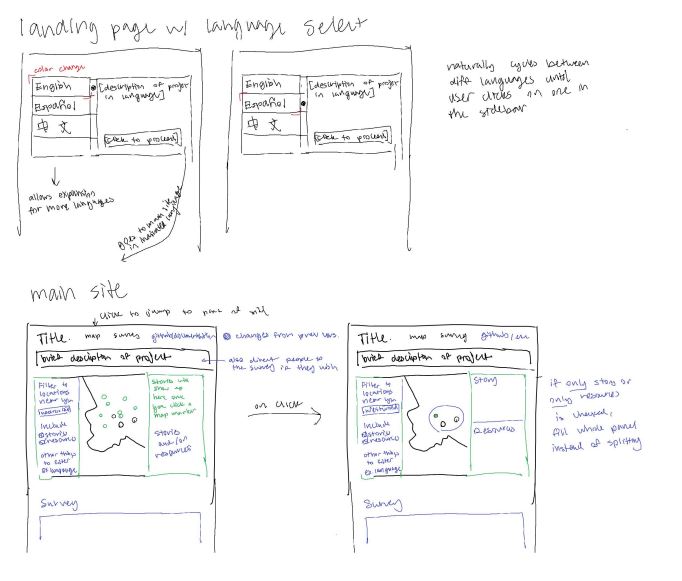 landing page w/ language select
color change
English
Español
中文
[description of project
in language]
[click to proceed]
allows expansion
for more languages
goes to main site
in indicated language
English
Español
中文
[description of project
in language]
[click to proceed]
naturally cycles between
diff languages until
user clicks on one in
the sidebar
main site
click to jump to part of site
Title. map survey github/documentation
changes from prev vers.
brief description of project
also direct people to
the survey if they wish
Filter 4
locations
near you
include
stories
resources
other things
to filter
language
stories will
show up
here once
you click a
map marker
stories
and/or
resources
Survey
on click
Title. map survey github/
brief description of project
Filter 4
locations
near you
include
stories
resources
other things
to filter
language
Story
Resources
if only story or
only resources
is checked,
fill whole panel
instead of splitting
Survey